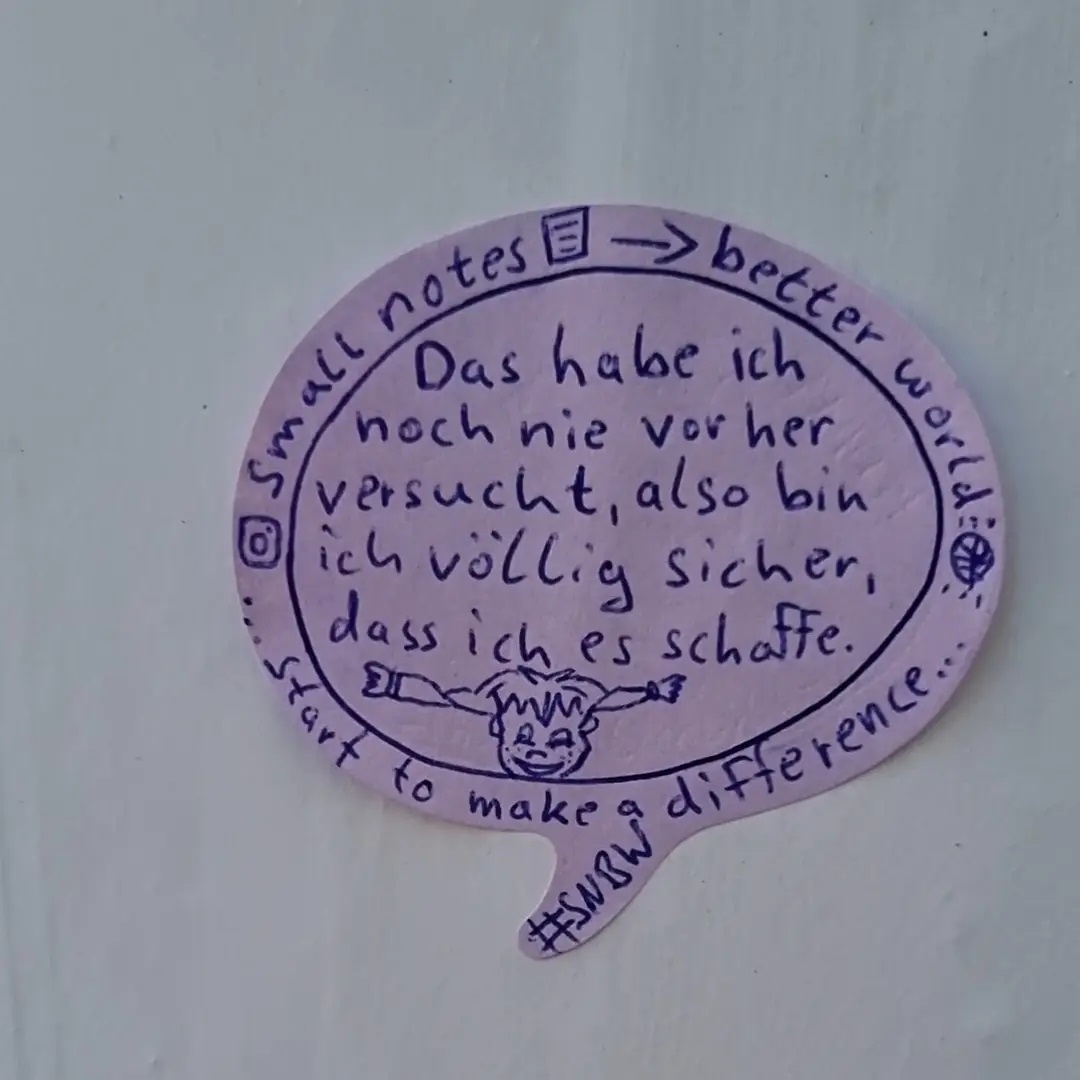 Small notes → better world
Das habe ich
noch nie vorher
versucht, also bin
ich völlig sicher,
dass ich es schaffe.
... Start to make a difference...
#SNBW